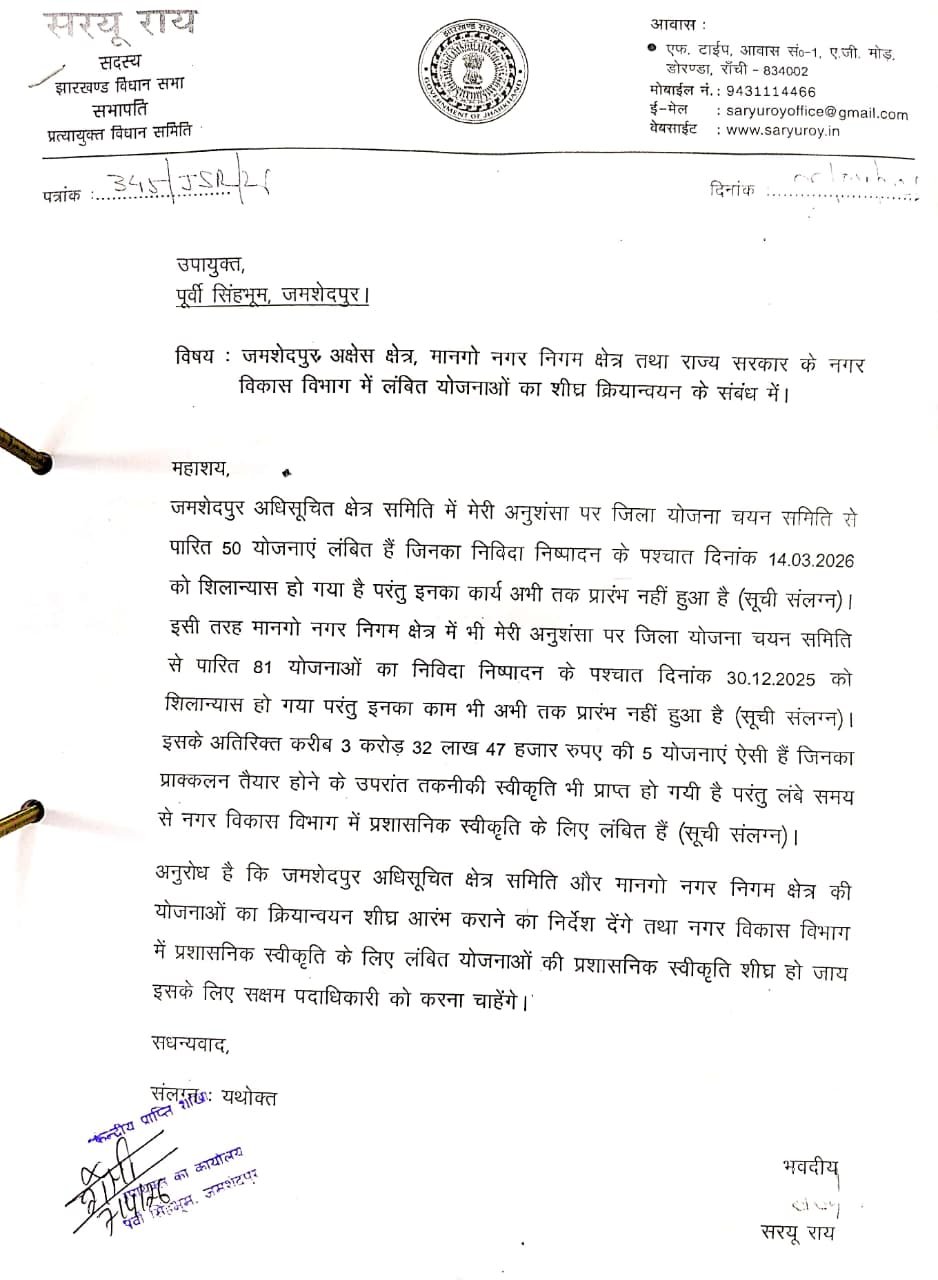 सरयू राय
सदस्य
झारखण्ड विधान सभा
सभापति
प्रत्यायुक्त विधान समिति
झारखण्ड सरकार
GOVERNMENT OF JHARKHAND
आवास :
एफ. टाईप, आवास सं०-1, ए.जी. मोड़,
डोरण्डा, राँची - 834002
मोबाईल नं. : 9431114466
ई-मेल : saryuroyoffice@gmail.com
वेबसाईट : www.saryuroy.in
पत्रांक : 345/JSR/26
दिनांक :
उपायुक्त,
पूर्वी सिंहभूम, जमशेदपुर।
विषय : जमशेदपुर अक्षेस क्षेत्र, मानगो नगर निगम क्षेत्र तथा राज्य सरकार के नगर
विकास विभाग में लंबित योजनाओं का शीघ्र क्रियान्वयन के संबंध में।
महाशय,
जमशेदपुर अधिसूचित क्षेत्र समिति में मेरी अनुशंसा पर जिला योजना चयन समिति से
पारित 50 योजनाएं लंबित हैं जिनका निविदा निष्पादन के पश्चात दिनांक 14.03.2026
को शिलान्यास हो गया है परंतु इनका कार्य अभी तक प्रारंभ नहीं हुआ है (सूची संलग्न)।
इसी तरह मानगो नगर निगम क्षेत्र में भी मेरी अनुशंसा पर जिला योजना चयन समिति
से पारित 81 योजनाओं का निविदा निष्पादन के पश्चात दिनांक 30.12.2025 को
शिलान्यास हो गया परंतु इनका काम भी अभी तक प्रारंभ नहीं हुआ है (सूची संलग्न)।
इसके अतिरिक्त करीब 3 करोड़ 32 लाख 47 हजार रुपए की 5 योजनाएं ऐसी हैं जिनका
प्राक्कलन तैयार होने के उपरांत तकनीकी स्वीकृति भी प्राप्त हो गयी है परंतु लंबे समय
से नगर विकास विभाग में प्रशासनिक स्वीकृति के लिए लंबित हैं (सूची संलग्न)।
अनुरोध है कि जमशेदपुर अधिसूचित क्षेत्र समिति और मानगो नगर निगम क्षेत्र की
योजनाओं का क्रियान्वयन शीघ्र आरंभ कराने का निर्देश देंगे तथा नगर विकास विभाग
में प्रशासनिक स्वीकृति के लिए लंबित योजनाओं की प्रशासनिक स्वीकृति शीघ्र हो जाय
इसके लिए सक्षम पदाधिकारी को करना चाहेंगे।
सधन्यवाद,
संलग्न : यथोक्त
केन्द्रीय प्राप्ति शाखा
का कार्यालय
पूर्वी सिंहभूम, जमशेदपुर
भवदीय
सरयू राय